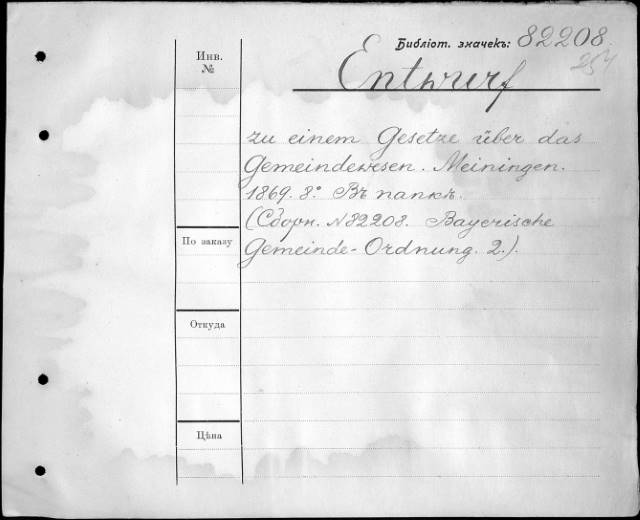 Библіот. значекъ: 82208
254
Инв.
№
Entwurf
zu einem Gesetze über das
Gemeindewesen. Meiningen.
1869. 8°. Въ папкѣ.
(Сборн. №82208. Bayerische
Gemeinde-Ordnung. 2.).
По заказу
Откуда
Цѣна